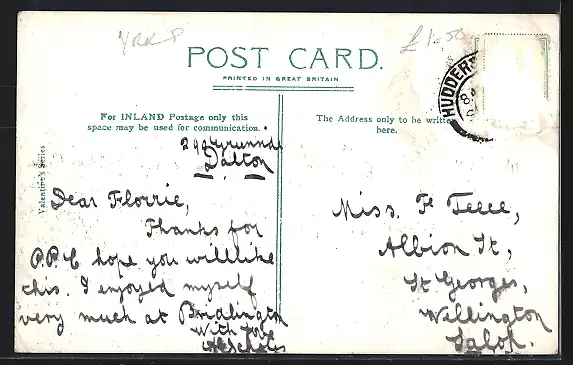 YRK P
£1-50
POST CARD.
PRINTED IN GREAT BRITAIN
For INLAND Postage only this
space may be used for communication.
The Address only to be written
here.
HUDDERS
Valentine's Series
Dalton
Dear Florrie,
Thanks for
P.P.C hope you will like
this. I enjoyed myself
very much at Bridlington
with love
Miss. F
Albion St,
St Georges,
Wellington
Salop.